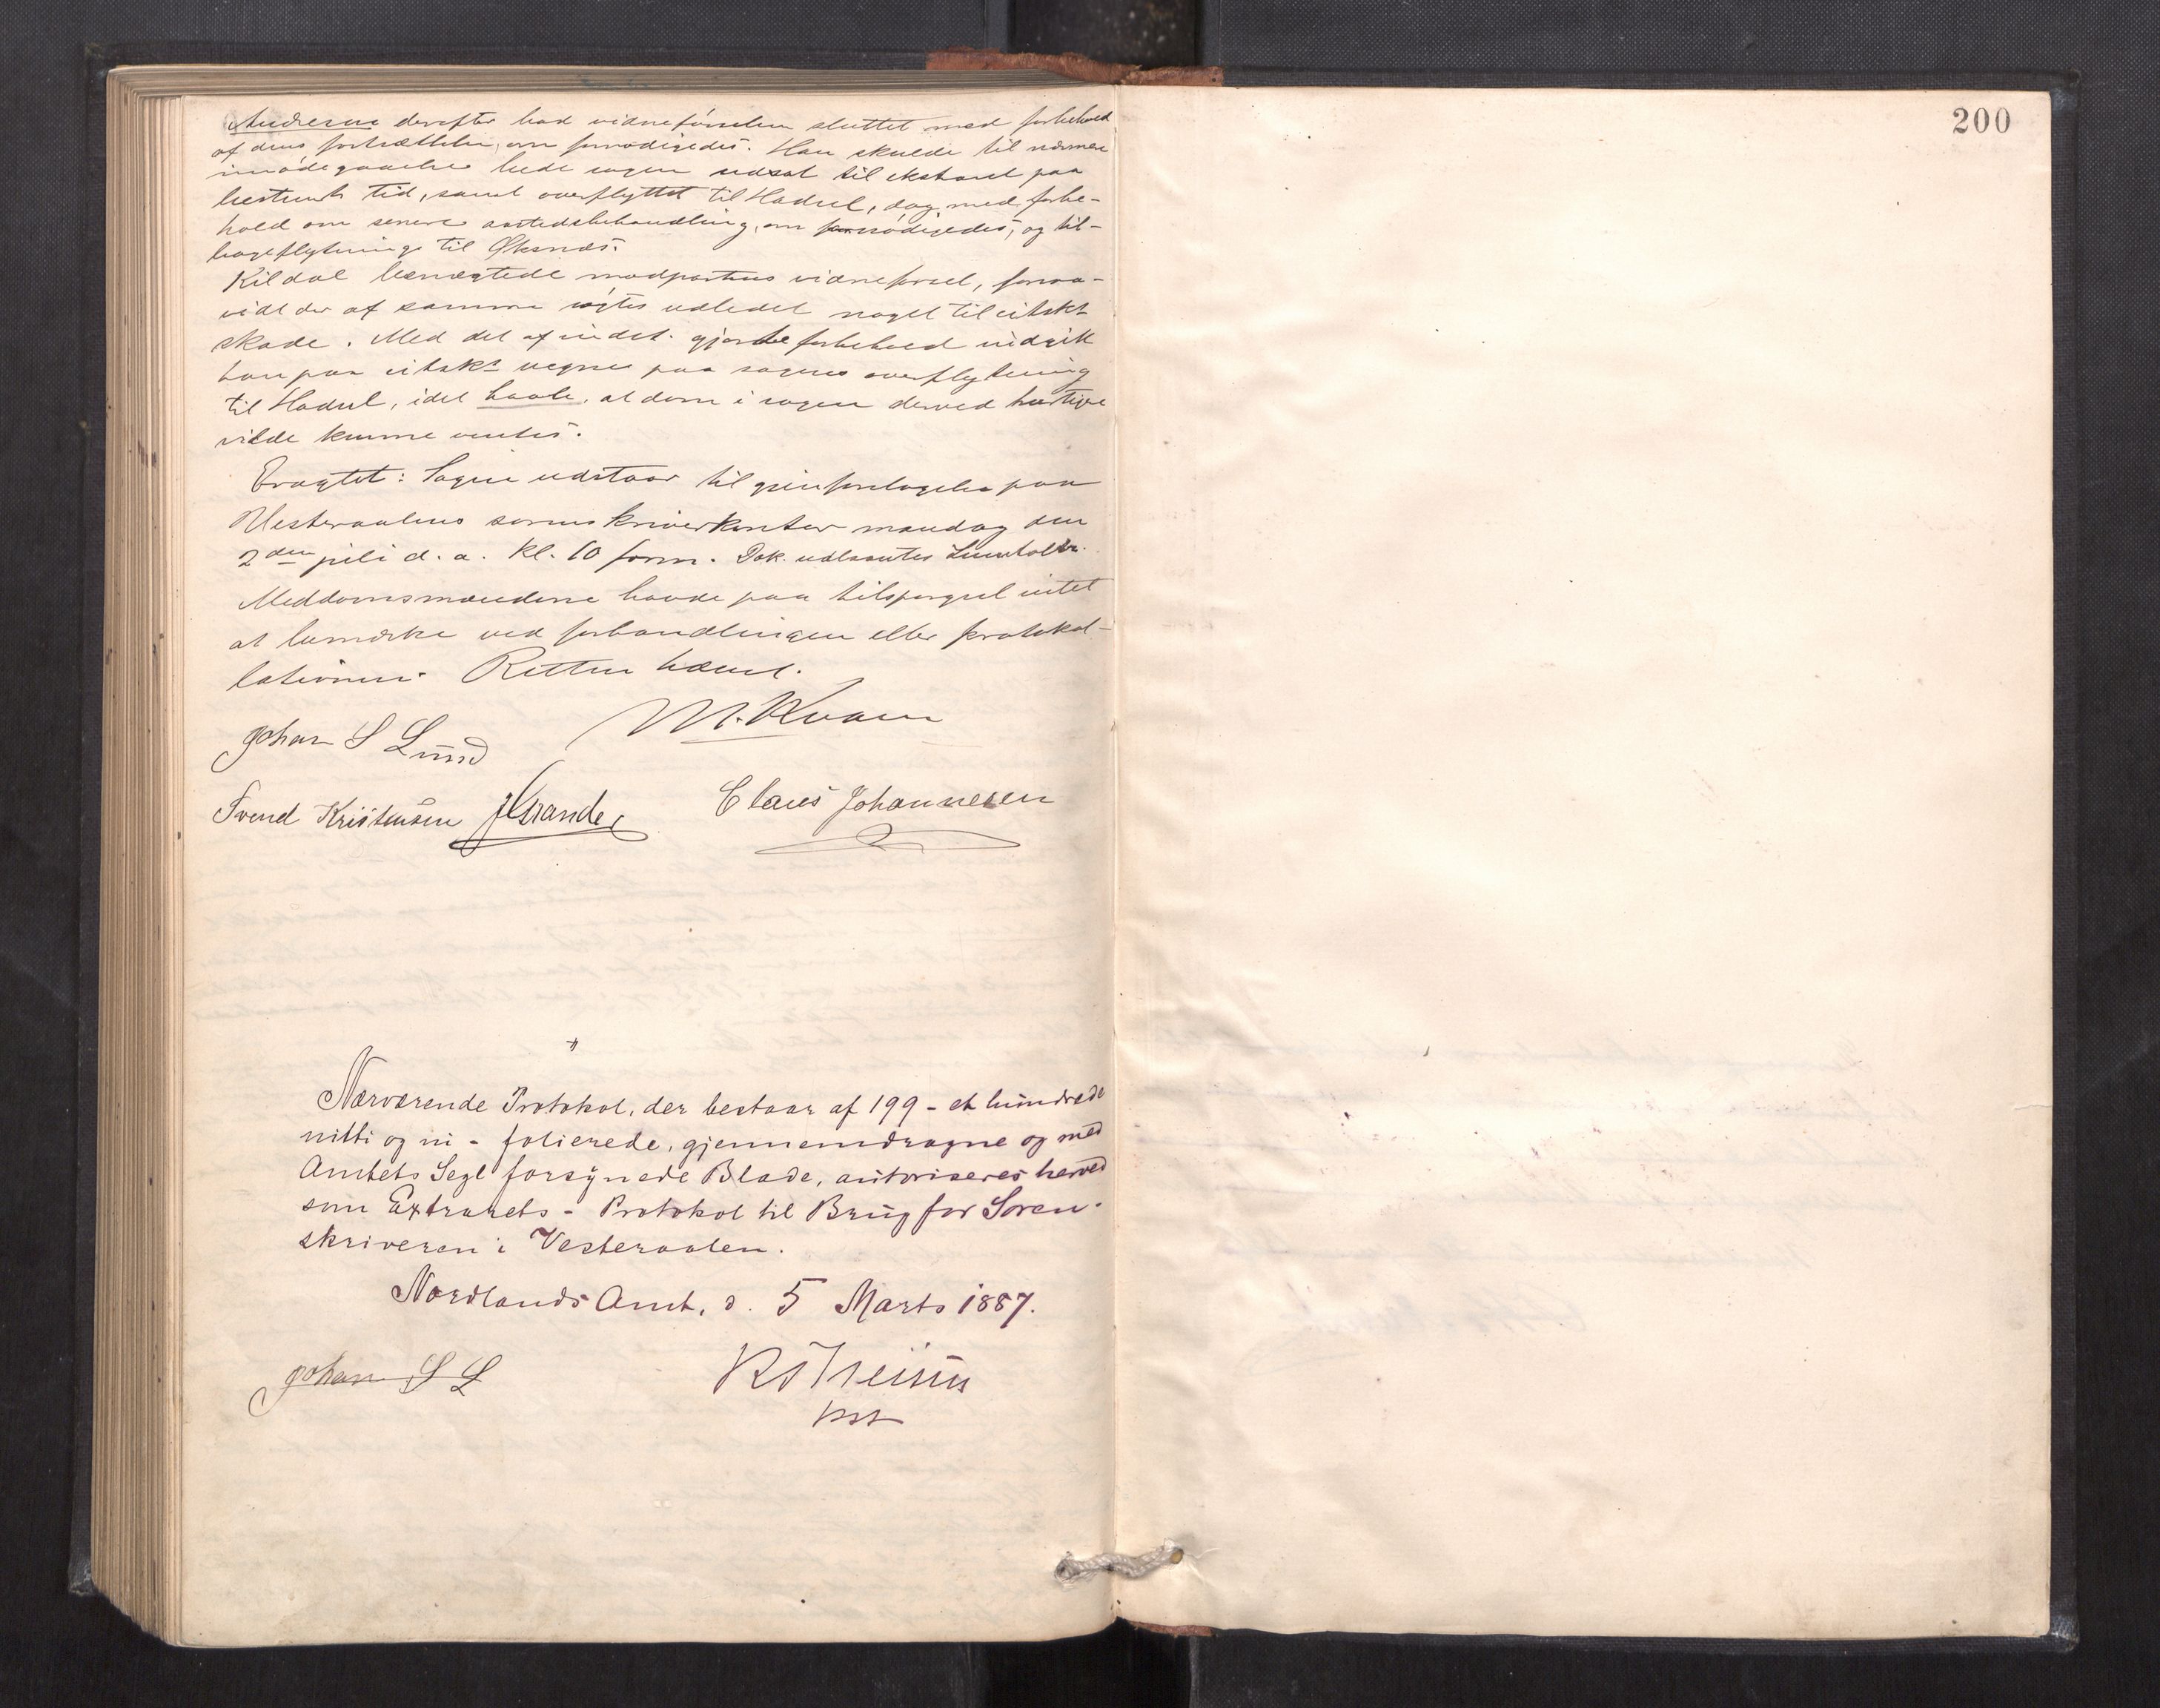 Andresen derefter bad vidneførselen sluttet med forbehold
af dens fortsættelse, om fornødigedes. Han skulde til nærmere
imødegaaelse bede sagen udsat til ekstraret paa
bestemt tid, samt overflyttet til Hadsel, dog med forbe-
hold om senere aastedsbehandling, om fornødigedes, og til-
bageflytning til Øksnes.
Kildal benægtede modpartens vidneførsel, forsaa-
vidt der af samme søgtes udledet noget til citskt
skade. Med det af indst. gjorte forbehold indgik
han paa citskts vegne paa sagens overflytning
til Hadsel, idet, at dom i sagen derved hurtigere
vilde kunne ventes.
Eragtet: Sagen udstaar til gjenforetagelse paa
Vesteraalens sorenskriverkontor mandag den
2den juli d. a. kl. 10 form. Dok. udlaantes
Meddomsmændene havde paa tilspørgsel intet
at bemærke ved forhandlingen eller protokol-
lationen. Retten hævet.
M. Kvam
Johan S Lund
Svend Kristensen Strande, Claus Johannesen
Nærværende Protokol, der bestaar af 199 - et hundrede
nitti og ni - folierede, gjennemdragne og med
Amtets Segl forsynede Blade, autoriseres herved
som Extrarets-Protokol til Brug for Soren-
skriveren i Vesteraalen.
Nordlands Amt, d. 5 Marts 1887.
Johan S L
200